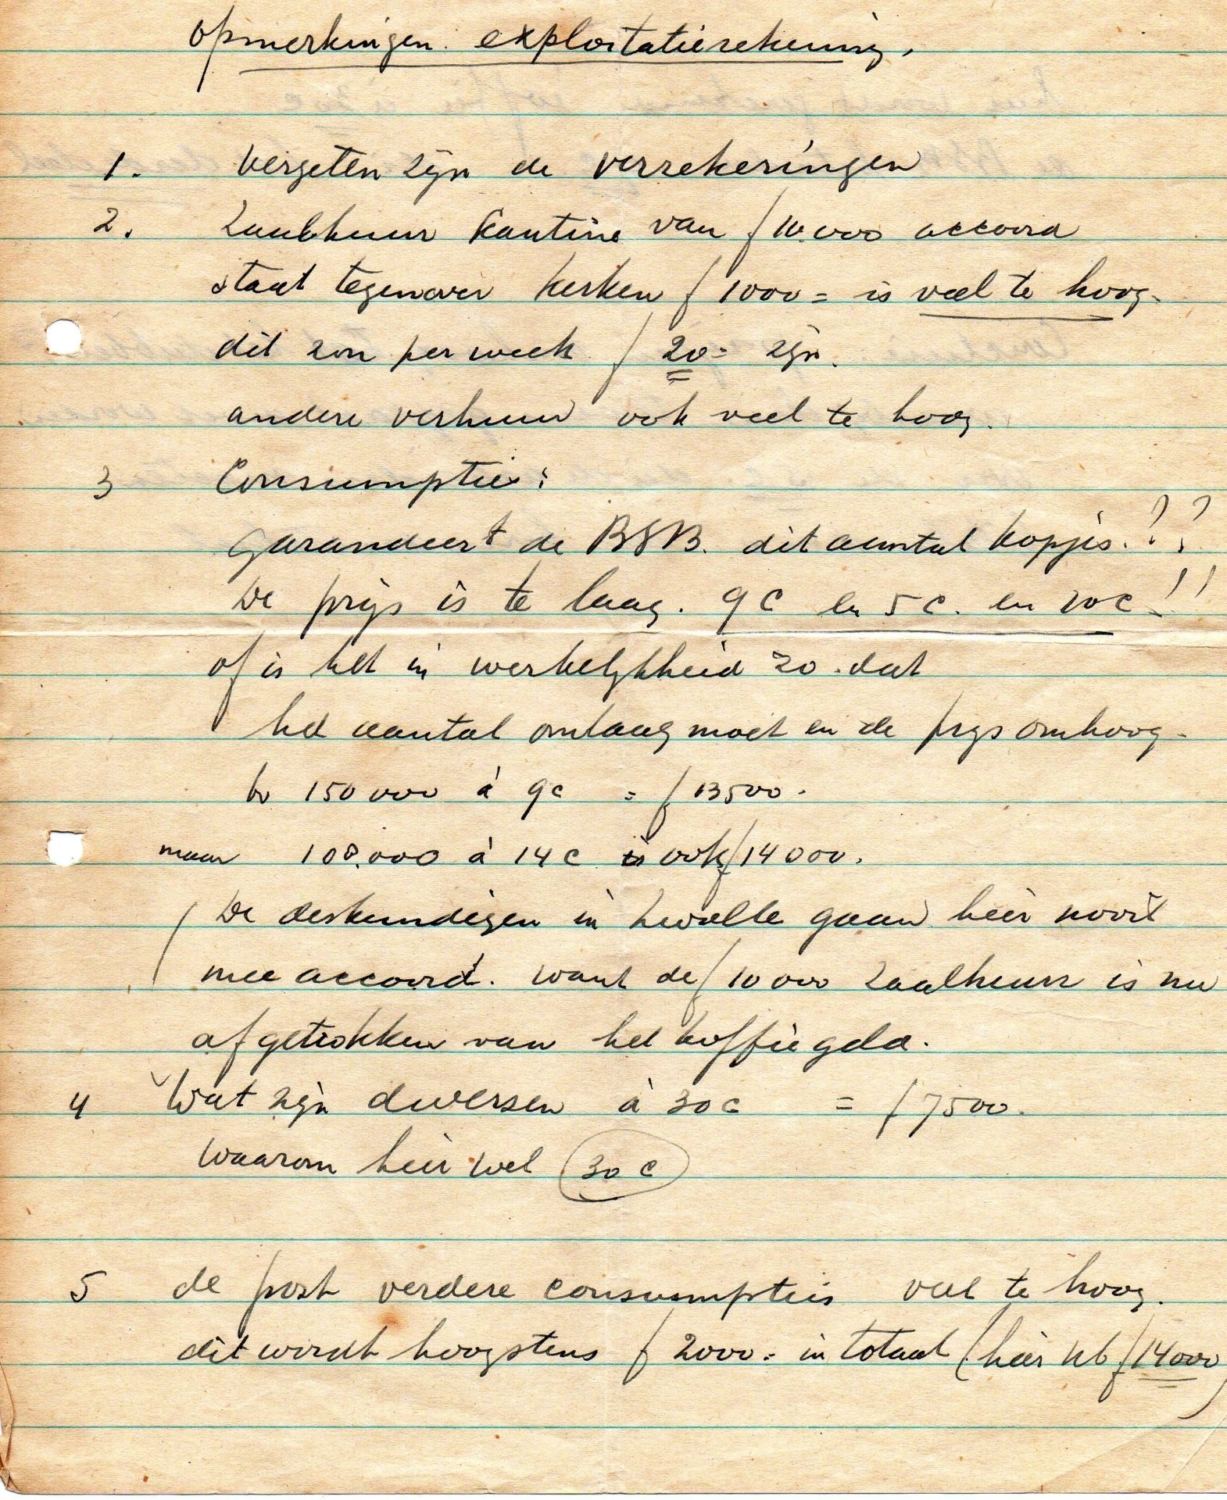 opmerkingen exploitatierekening.
1. vergeten zijn de verzekeringen
2. Zaalhuur kantine van f 10.000 accoord
staat tegenover kerken f 1000 = is veel te hoog.
dit zou per week f 20 = zijn.
andere verhuur ook veel te hoog.
3 Consumptie:
garandeert de BSB. dit aantal kopjes.??
De prijs is te laag. 9c en 5c. en 20c!!
of is het in werkelijkheid zo dat
het aantal omlaag moet en de prijs omhoog.
bv 150000 á 9c = f 13500.
maar 100.000 á 14c is ook f 14000.
( De deskundigen in Zwolle gaan hier nooit
mee accoord. want de f 10000 zaalhuur is nu
afgetrokken van het koffiegeld.
4 Wat zijn diversen á 30c = f 7500.
waarom hier wel 30c
5 de post verdere consumpties veel te hoog.
dit wordt hoogstens f 2000 = in totaal (hier nb f 14000)